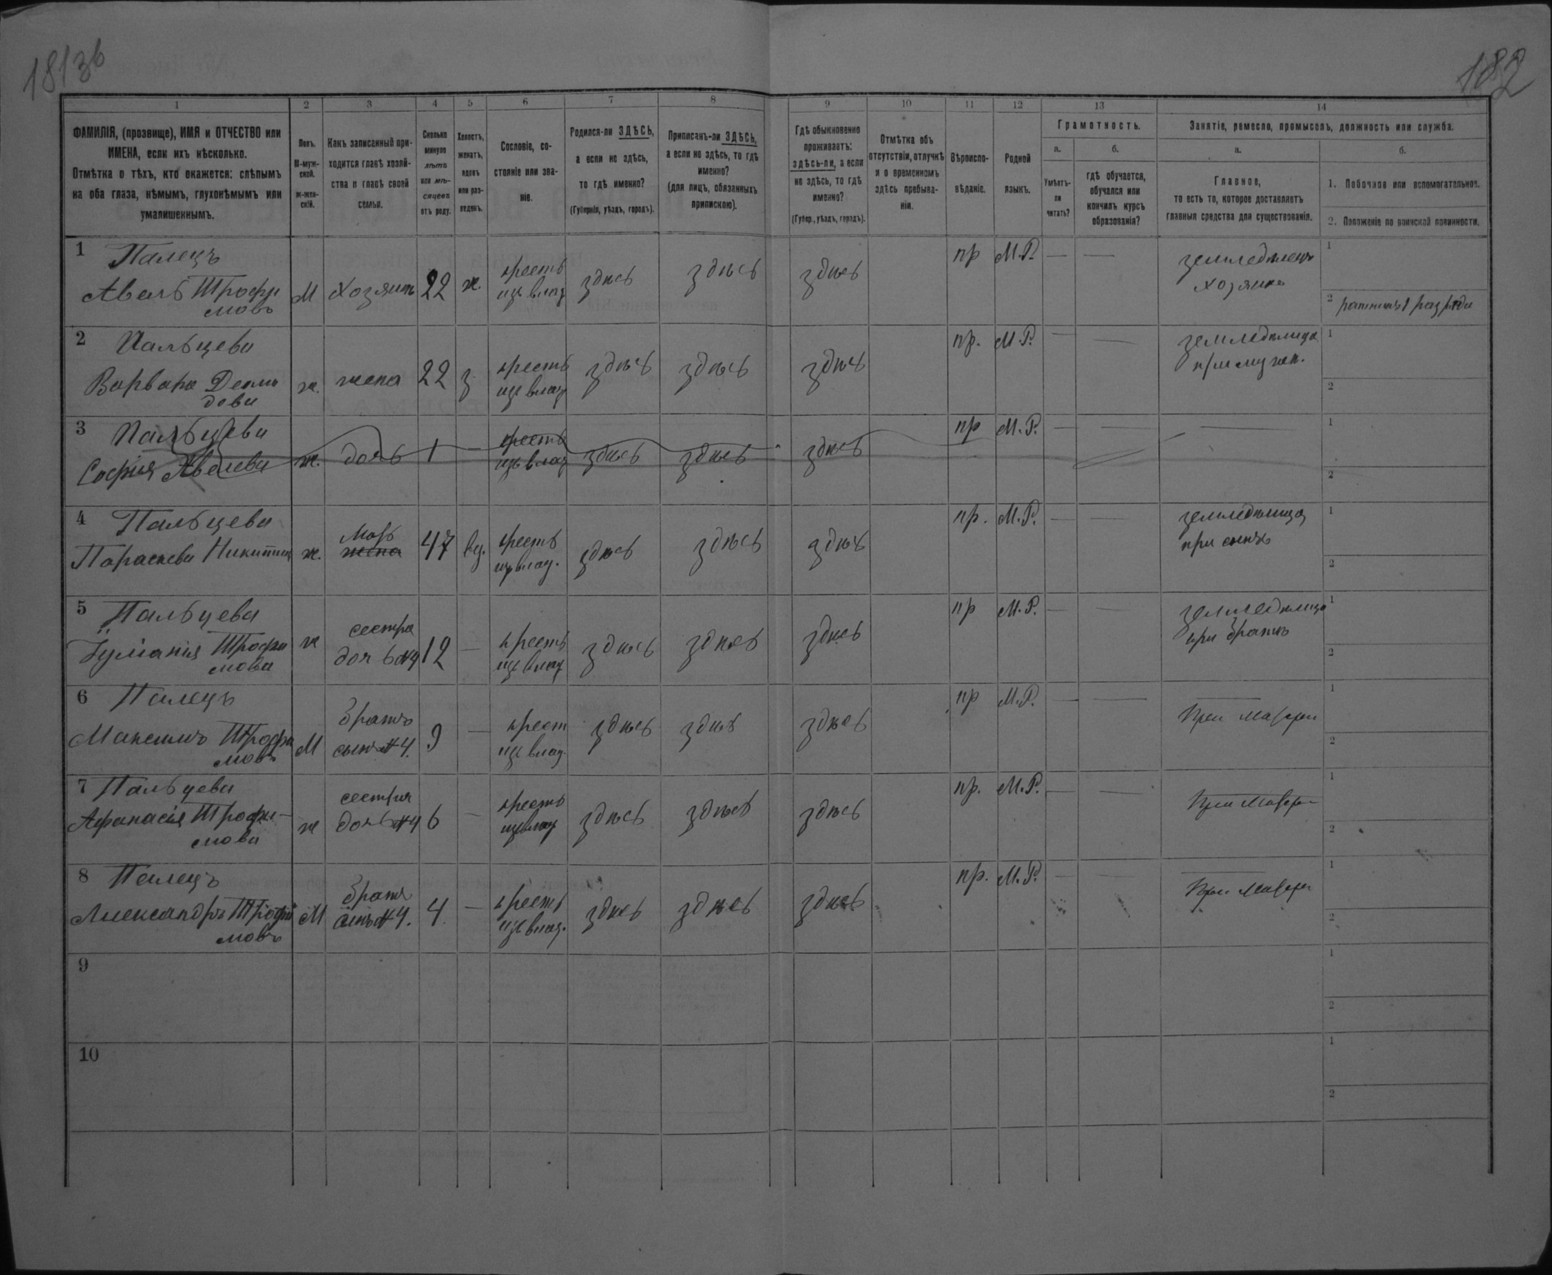 181зв
182
1 2 3 4 5 6 7 8 9 10 11 12 13 14
ФАМИЛІЯ, (прозвище), ИМЯ и ОТЧЕСТВО или
ИМЕНА, если ихъ нѣсколько.
Отмѣтка о тѣхъ, кто окажется: слѣпымъ
на оба глаза, нѣмымъ, глухонѣмымъ или
умалишеннымъ.
Полъ.
М-муж-
ской.
ж-жен-
скій.
Какъ записанный при-
ходится главѣ хозяй-
ства и главѣ своей
семьи.
Сколько
минуло
лѣтъ
или мѣ-
сяцевъ
отъ роду.
Холостъ,
женатъ,
вдовъ
или раз-
веденъ.
Сословіе, со-
стояніе или зва-
ніе.
Родился-ли ЗДѢСЬ,
а если не здѣсь,
то гдѣ именно?
(Губернія, уѣздъ, городъ).
Приписанъ-ли ЗДѢСЬ,
а если не здѣсь, то гдѣ
именно?
(для лицъ, обязанныхъ
припискою).
Гдѣ обыкновенно
проживаетъ:
здѣсь-ли, а если
не здѣсь, то гдѣ
именно?
(Губер., уѣздъ, городъ).
Отмѣтка объ
отсутствіи, отлучкѣ
и о временномъ
здѣсь пребыва-
ніи.
Вѣроиспо-
вѣданіе.
Родной
языкъ.
Грамотность.
а.
Умѣетъ-
ли
читать?
б.
гдѣ обучается,
обучался или
кончилъ курсъ
образованія?
Занятіе, ремесло, промыселъ, должность или служба.
а.
Главное,
то есть то, которое доставляетъ
главныя средства для существованія.
б.
1. Побочное или вспомогательное.
2. Положеніе по воинской повинности.
1 Палецъ
Авель Трофи
мовъ М Хозяинъ 22 ж крестъ
изъ влад здѣсь здѣсь здѣсь пр М.Р. — — земледѣлецъ
хозяинъ 1
2 ратникъ 1 разряда
2 Пальцева
Варвара Деми
дова ж. жена 22 з крестъ
изъ влад здѣсь здѣсь здѣсь пр. М.Р. — — земледѣлица
при муж. 1
2
3 Пальцева
София Авелева ж. дочь 1 — крестъ
изъ влад здѣсь здѣсь здѣсь пр М.Р. — — — 1
2
4 Пальцева
Параскева Никитина ж. мать
жена 47 вд. крестъ
изъ влад. здѣсь здѣсь здѣсь пр. М.Р. — — земледѣлица
при сынѣ 1
2
5 Пальцева
Трофи
мова ж сестра
дочь №4 12 — крестъ
изъ влад здѣсь здѣсь здѣсь пр М.Р. — — земледѣлица
при братѣ 1
2
6 Палецъ
Максимъ Трофи
мовъ М братъ
сынъ №4. 9 — крест
изъ влад здѣсь здѣсь здѣсь пр М.Р. — — —
При матери 1
2
7 Пальцева
Афанасія Трофи-
мова ж сестра
дочь №4 6 — крестъ
изъ влад здѣсь здѣсь здѣсь пр. М.Р. — — —
При матери 1
2
8 Палецъ
Александръ Трофи
мовъ М братъ
сынъ №4. 4 — крестъ
изъ влад. здѣсь здѣсь здѣсь пр. М.Р. — — —
При матери 1
2
9 1
2
10 1
2